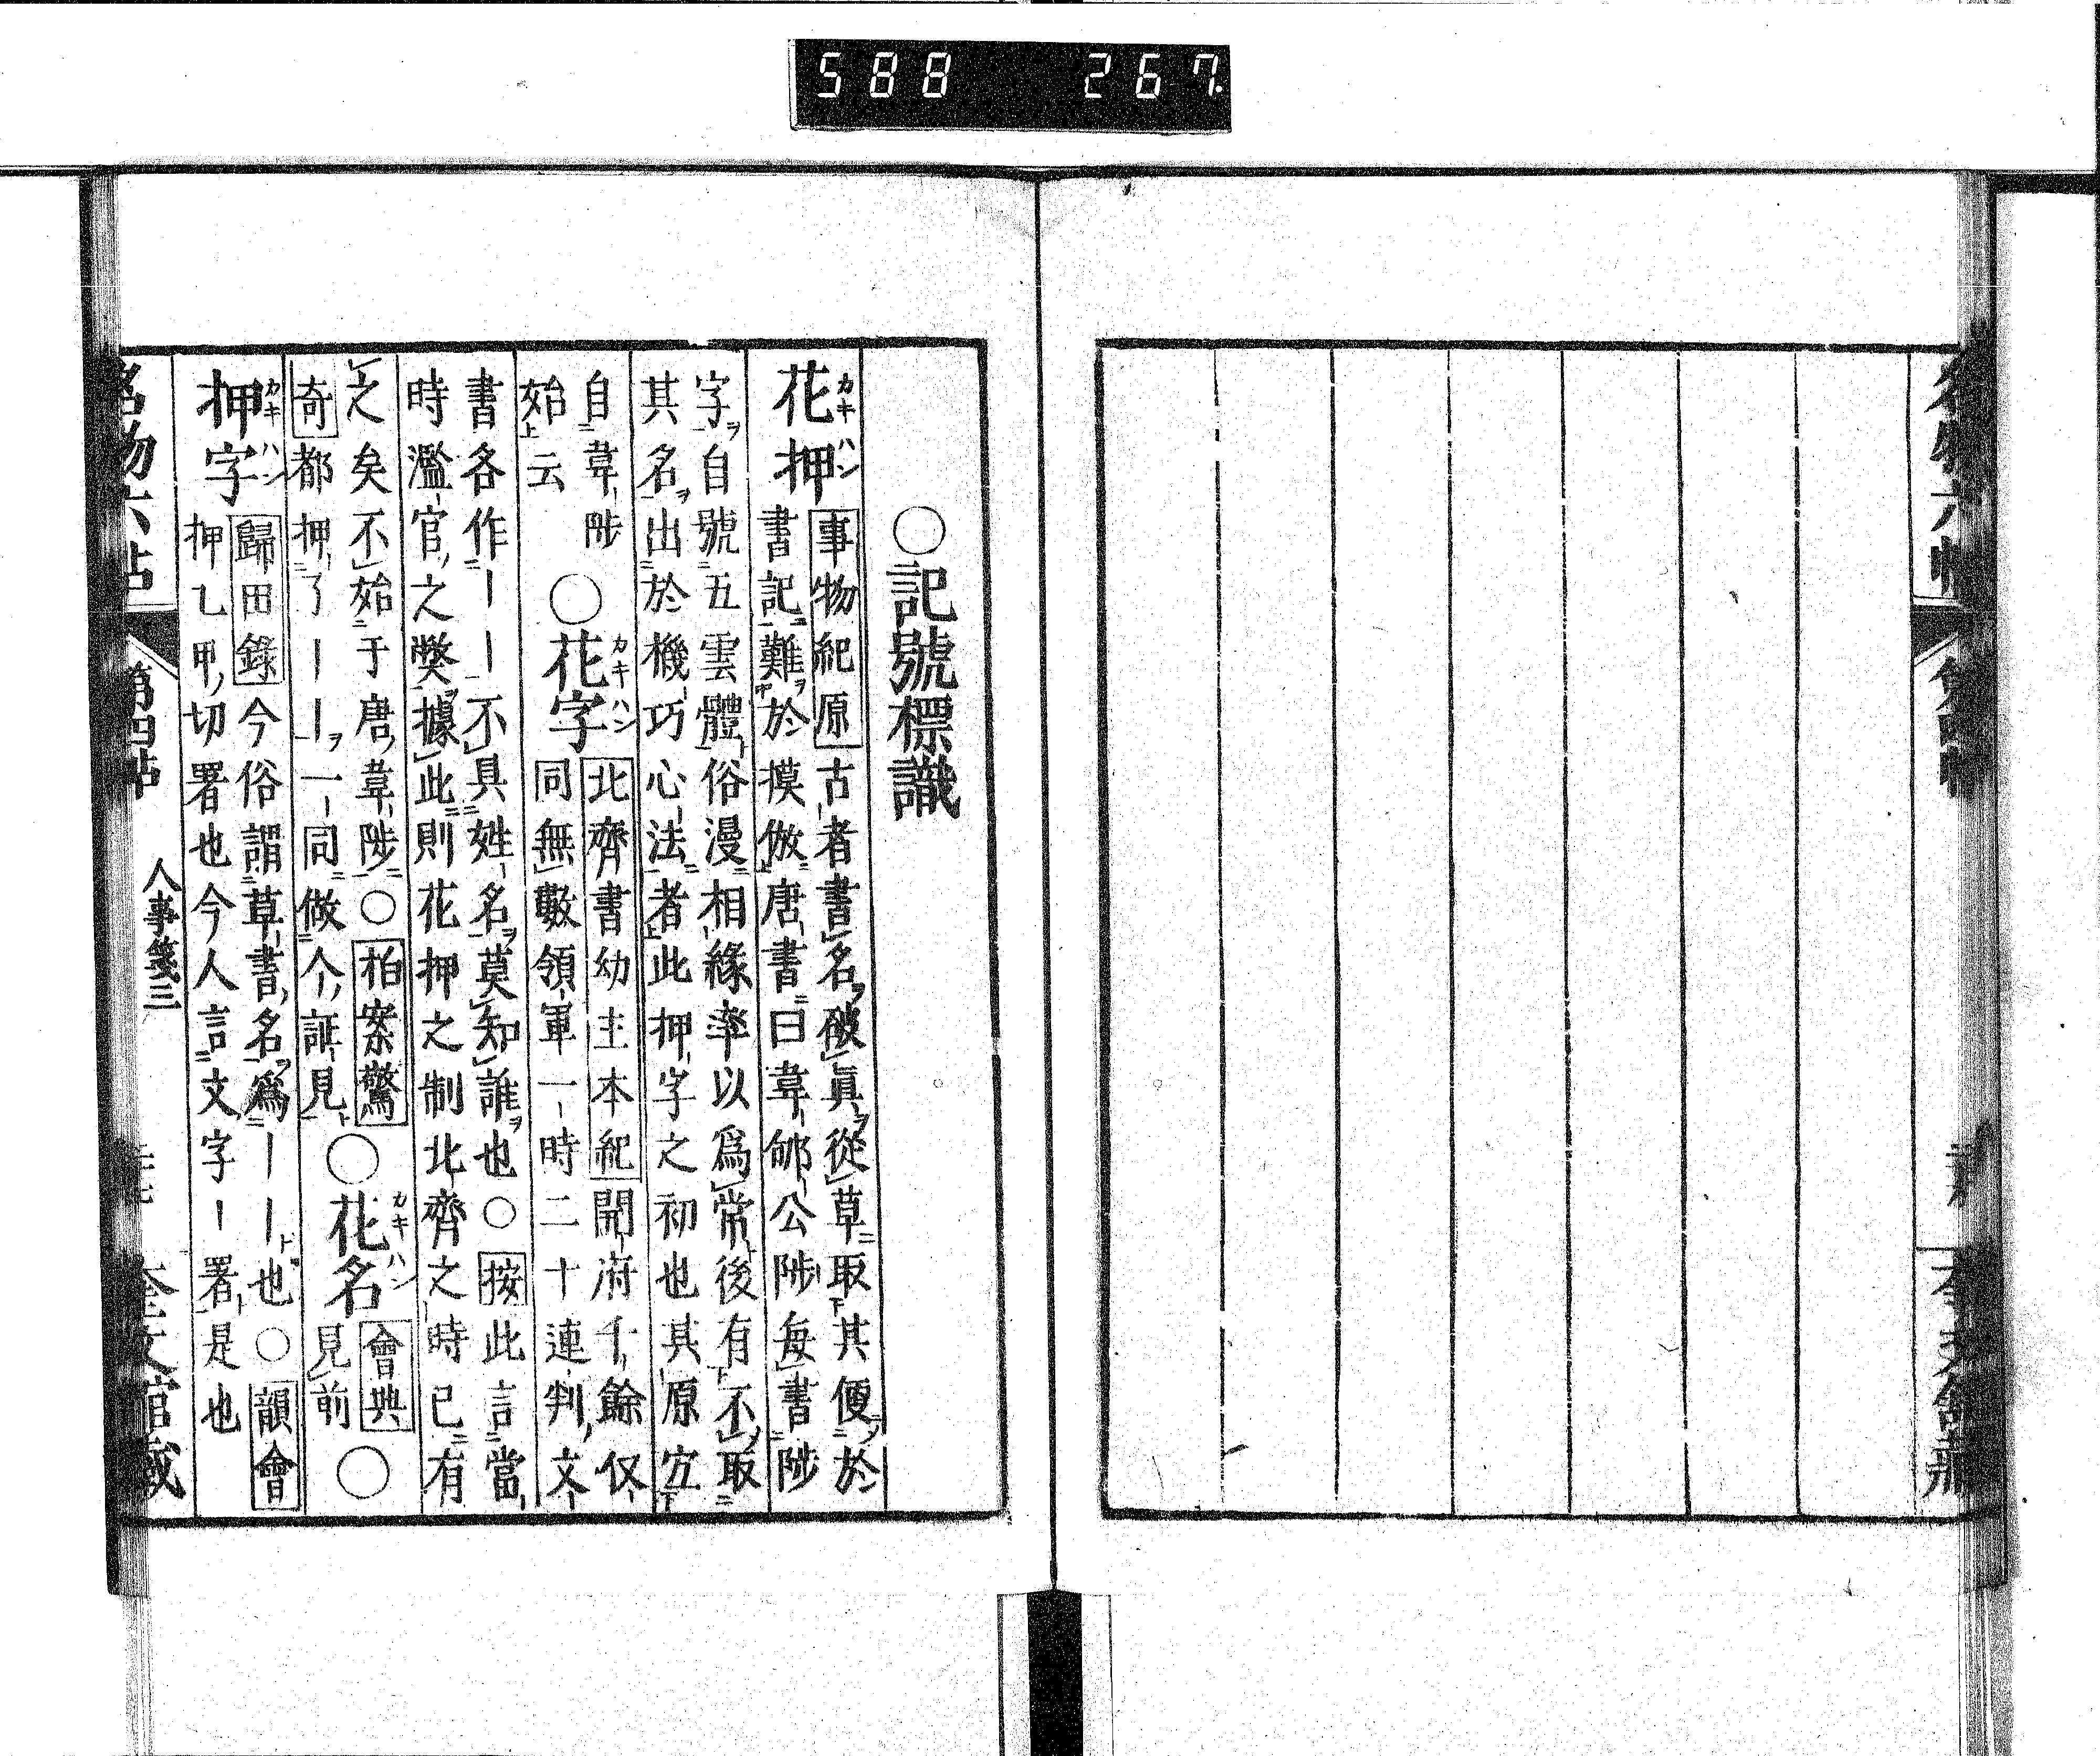 588 267
〇記號標識
花押カキハン 事物紀原 古者書名破眞從草取其便於
書記難於摸倣唐書曰韋郇公陟每書陟
字自號五雲體俗漫相緣率以爲常後有不取
其名出於機巧心法者此押字之初也其原宜
自韋陟
始云
〇花字カキハン 北齊書幼主本紀 開府千餘仅
同無數領軍一時二十連判文
書各作丨丨不具姓名莫知誰也○按此言當
時濫官之獘據此則花押之制北齊之時已有
之矣不始于唐韋陟○柏案驚
奇都押了丨丨一同做个証見
〇花名カキハン 會典
見前
〇
押字カキハン 歸田錄 今俗謂草書名爲丨丨也○韻會
押乙甲切署也今人言文字丨署是也
名物六帖 第四帖 人事箋三 奎文館藏